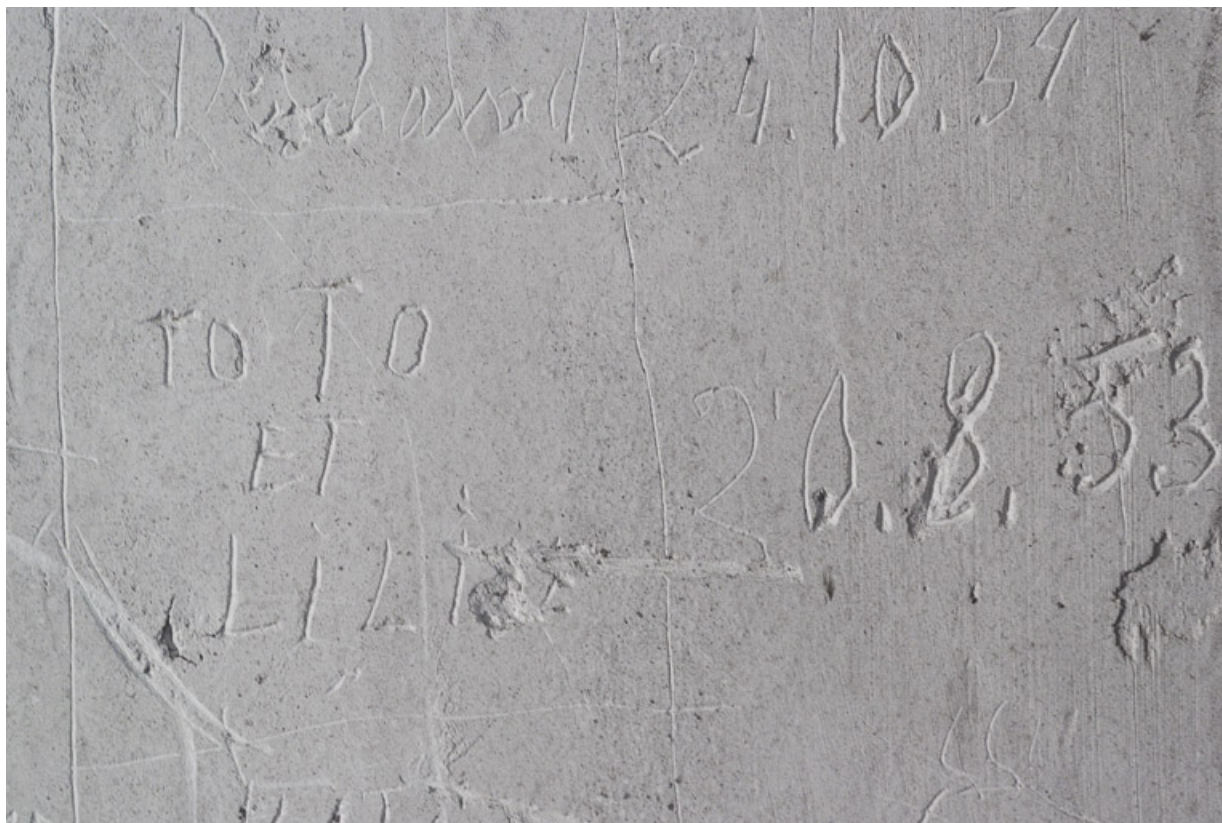 Richard 24.10.54
TOTO
ET
LiLi
20.8.53